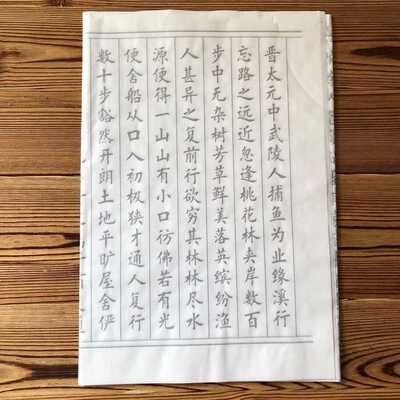 晋太元中武陵人捕鱼为业缘溪行
忘路之远近忽逢桃花林夹岸数百
步中无杂树芳草鲜美落英缤纷渔
人甚异之复前行欲穷其林林尽水
源便得一山山有小口彷佛若有光
便舍船从口入初极狭才通人复行
数十步豁然开朗土地平旷屋舍俨